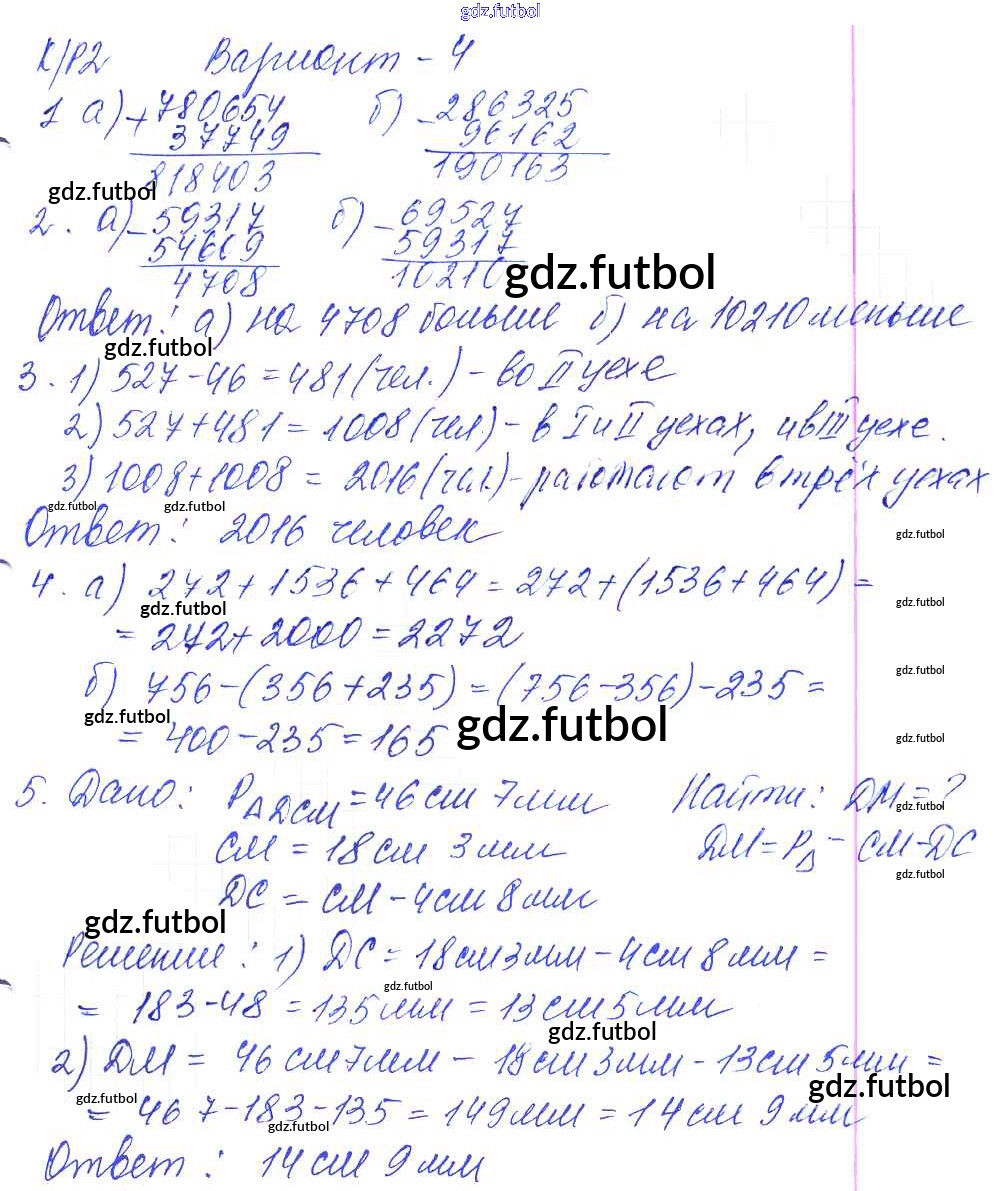 gdz.futbol
К/Р2 Вариант - 4
1 а) + 780654 б) - 286325
37749 96162
818403 190163
gdz.futbol
2. а) - 59317 б) - 69527
54609 59317
4708 10210
gdz.futbol
Ответ: а) на 4708 больше б) на 10210 меньше
gdz.futbol
3. 1) 527-46 = 481 (чел.) - во II цехе
2) 527+481 = 1008 (чел) - в I и II цехах, и в III цехе.
3) 1008+1008 = 2016 (чел.) - работают в трёх цехах
gdz.futbol gdz.futbol
Ответ: 2016 человек
gdz.futbol
4. а) 272+1536+464 = 272+(1536+464) =
gdz.futbol gdz.futbol
= 272+2000 = 2272
б) 756-(356+235) = (756-356)-235 =
gdz.futbol
gdz.futbol gdz.futbol
= 400-235 = 165
gdz.futbol
5. Дано: P АДСМ = 46 см 7 мм Найти: ДМ = ?
gdz.futbol
СМ = 18 см 3 мм ДМ = P∆ - СМ - ДС
gdz.futbol
ДС = СМ - 4 см 8 мм
gdz.futbol
Решение: 1) ДС = 18 см 3 мм - 4 см 8 мм =
gdz.futbol
= 183-48 = 135 мм = 13 см 5 мм
gdz.futbol
2) ДМ = 46 см 7 мм - 18 см 3 мм - 13 см 5 мм =
gdz.futbol
gdz.futbol
= 467-183-135 = 149 мм = 14 см 9 мм
gdz.futbol
Ответ: 14 см 9 мм